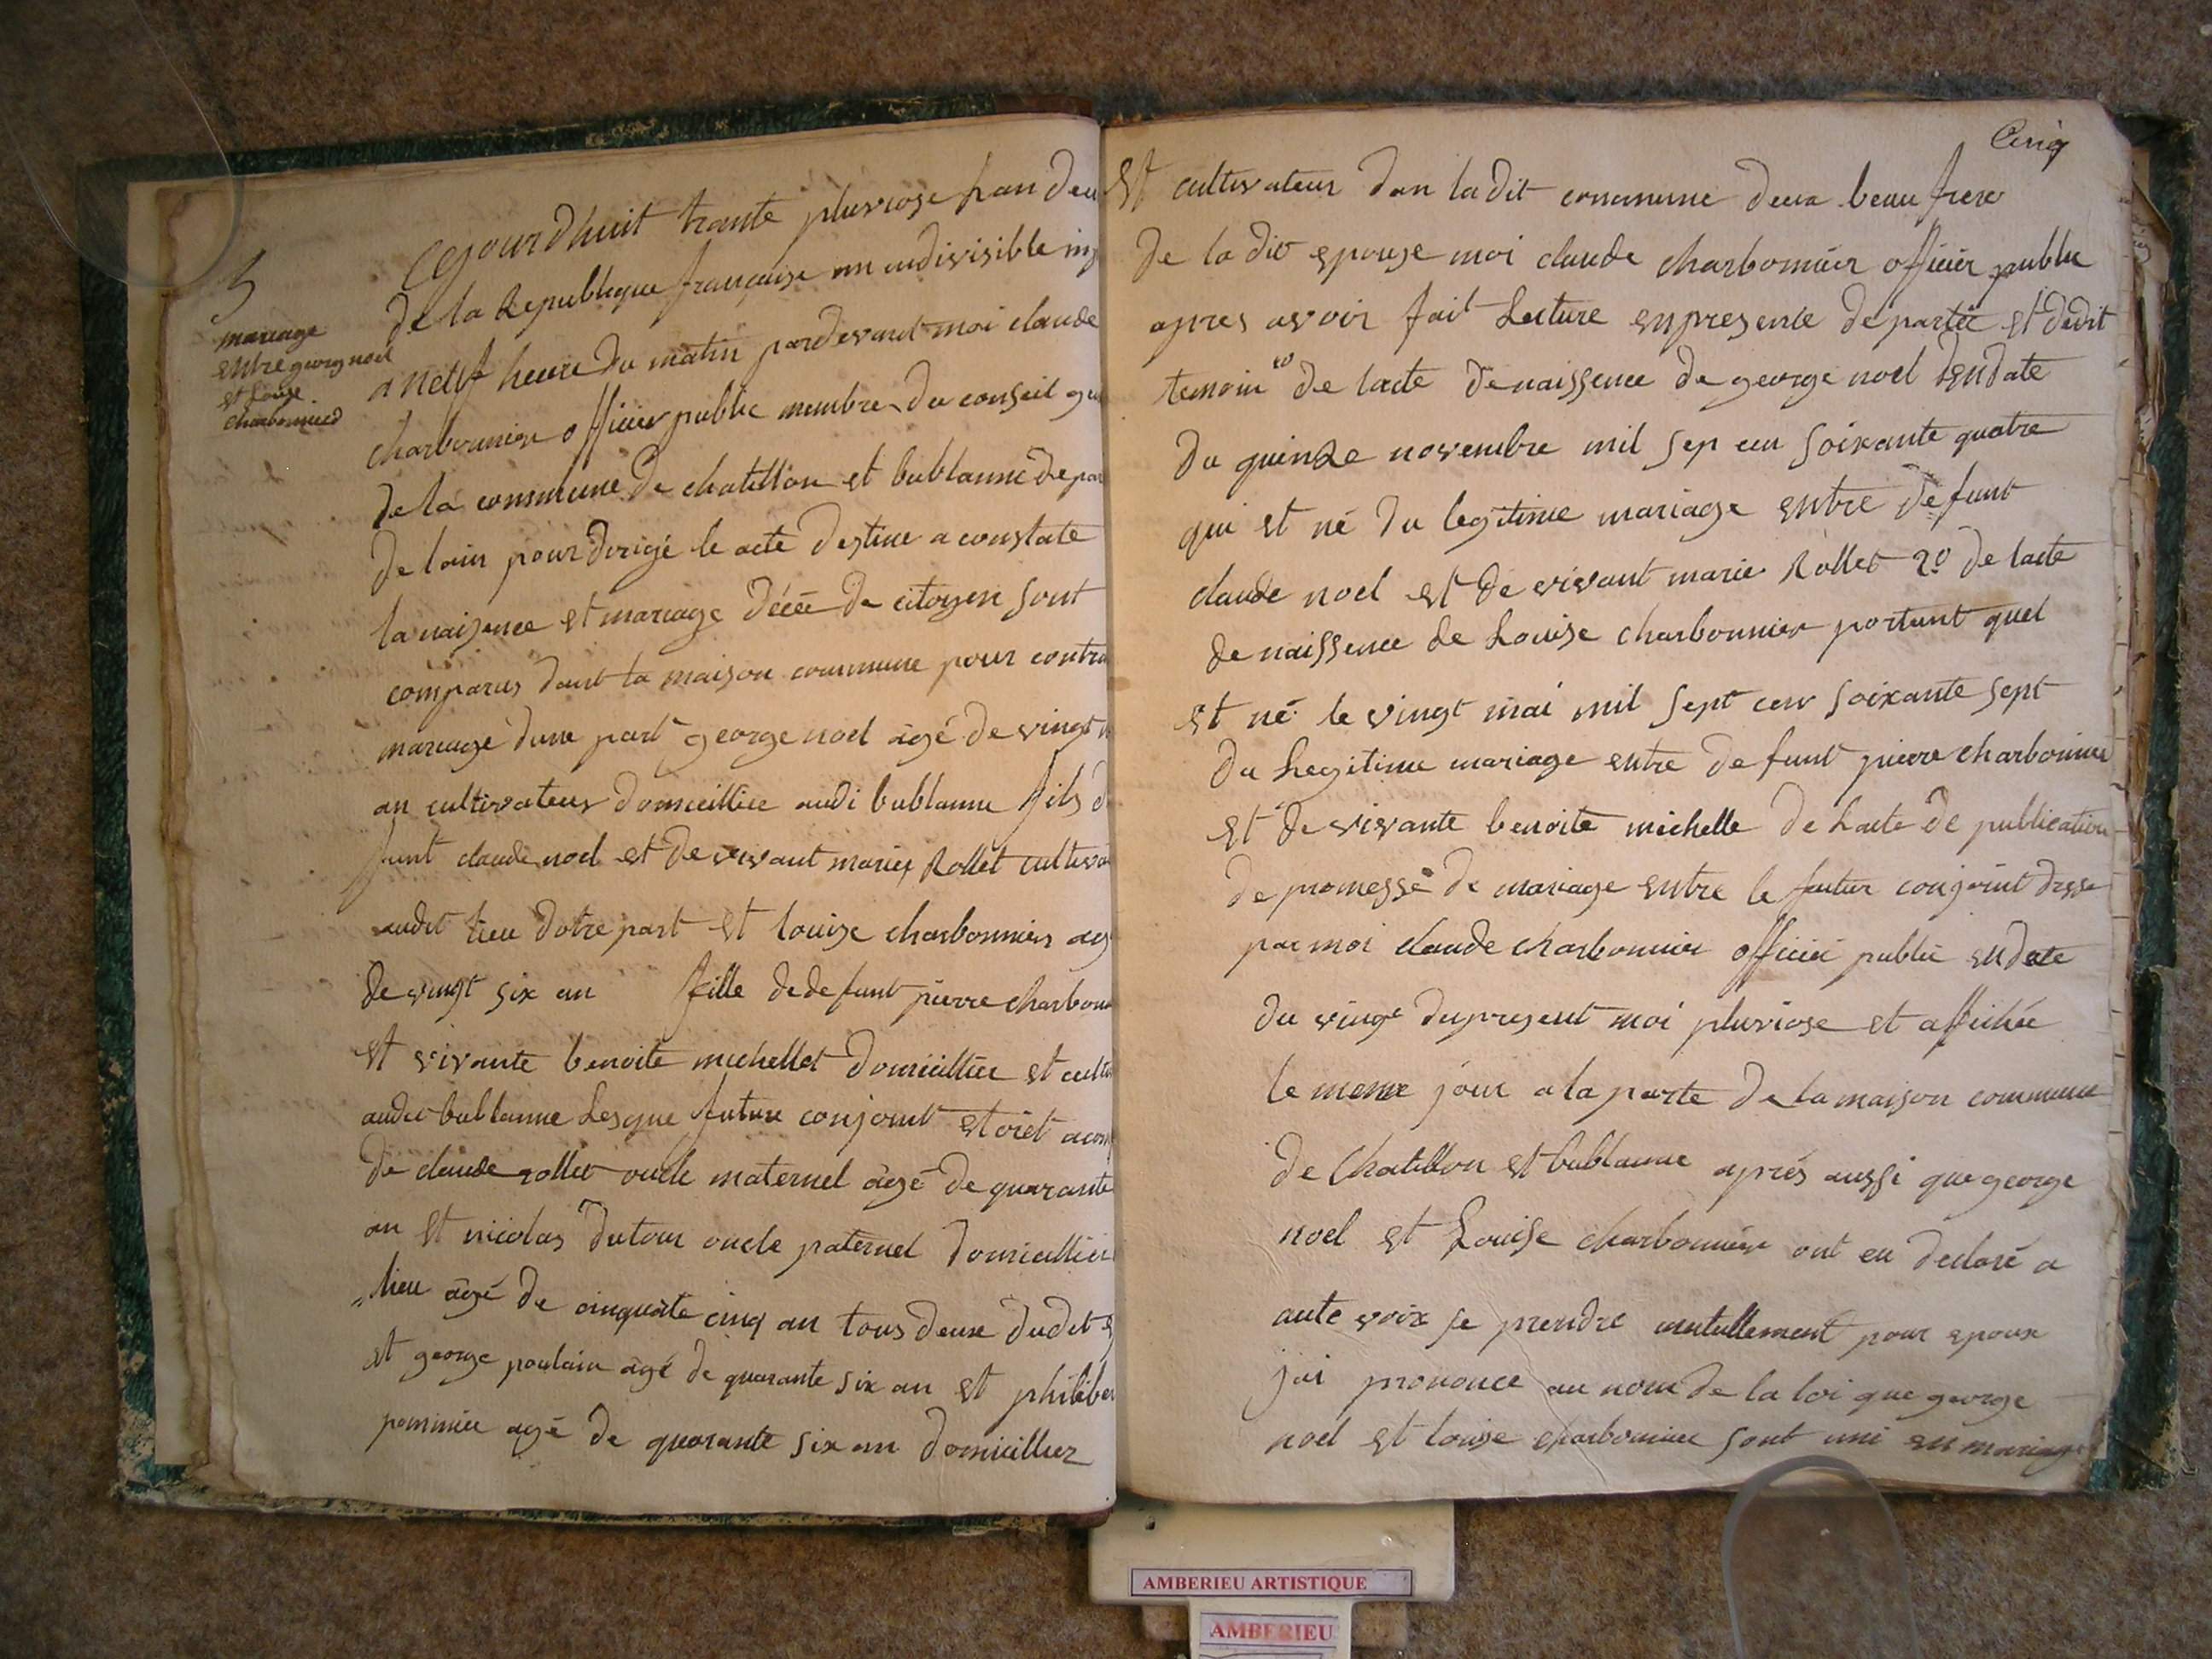 5
mariage
entre georg noel
et Louise
charbonnier
Cejourdhuit trante pluviose lan deu
de la Republique française un indivisible
a netf heure du matin pardevant moi claude
charbonnier officier public membre du conseil
de la commune de chatillon et bublanne depar
de lain pour dirigé le acte destine a constate
la naisence et mariage décée de citoyen sont
comparus dant la maison commune pour contra
mariage dune part george noel agé de vingt
an cultivateur domicillier audi bublanne fils d
funt claude noel et de vivant marie Rollet cultiva
audit lieu dotre part et louise charbonnier ag
de vingt six an fille de defunt pierre charbonn
et vivante benoite michellet domicillier et culti
audit bublanne Lesque future conjoint etoiet acom
de claude rollet oncle maternel agé de quarante
an et nicolas dutour oncle paternel domicillier
lieu agé de cinquate cinq an tous deux dudit
et george poulain agé de quarante six an et philiber
pommier agé de quarante six an domicillier
Cinq
et cultivateur dan ladit commune deux beau frere
de la dit epouse moi claude charbonnier officier public
apres avoir fait Lecture en presence de partie et dedit
temoin 1º de lacte de naissence de george noel en date
du quinze novembre mil sep cen soixante quatre
qui et né du legitime mariage entre defunt
claude noel et de vivant marie Rollet 2º de lacte
de naissence de Louise charbonnier portant quel
et né le vingt mai mil sept cen soixante sept
du Legitime mariage entre defunt pierre charbonnier
et de vivante benoite michelle de Lacte de publication
de promesse de mariage entre le futur conjoint dresse
par moi claude charbonnier officié public en date
du vingt du present moi pluviose et affichée
le meme jour a la porte de la maison commune
de Chatillon et bublanne aprés aussi que george
noel et Louise charbonnier ont eu declaré a
aute voix se prendre mutullement pour epoux
jai prononce au nom de la loi que george
noel et louise charbonnier sont uni en mariage
AMBERIEU ARTISTIQUE
AMBERIEU